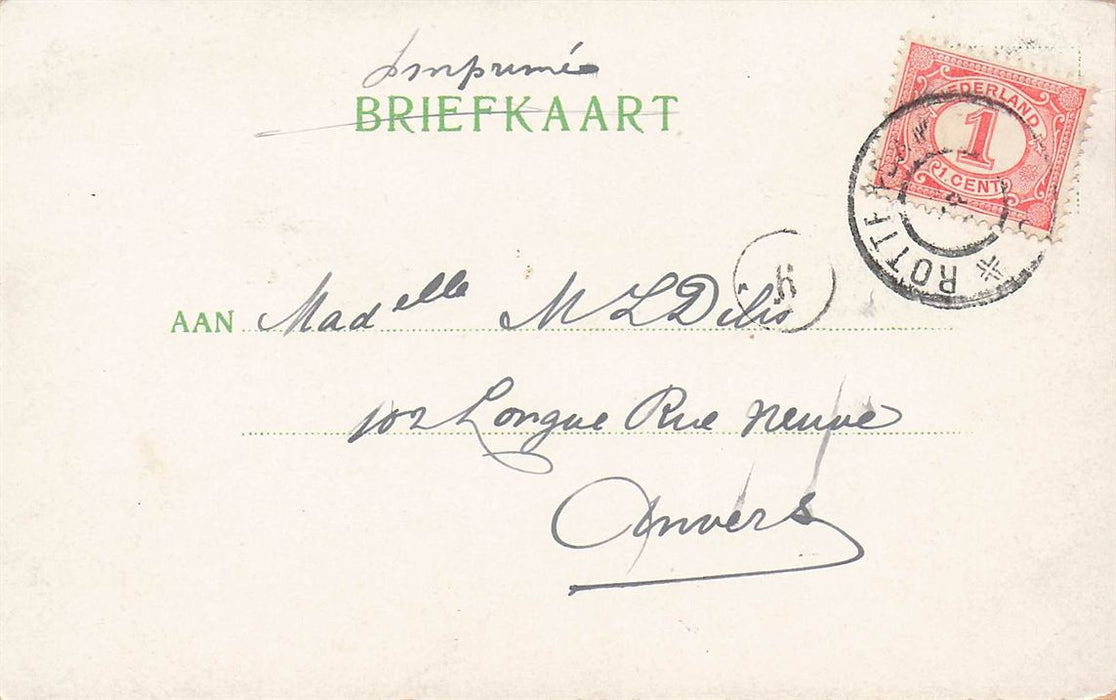 Imprimé
BRIEFKAART
NEDERLAND
1
1 CENT
ROTTE
AAN Madelle M L Dilis
102 Longue Rue Neuve
Anvers